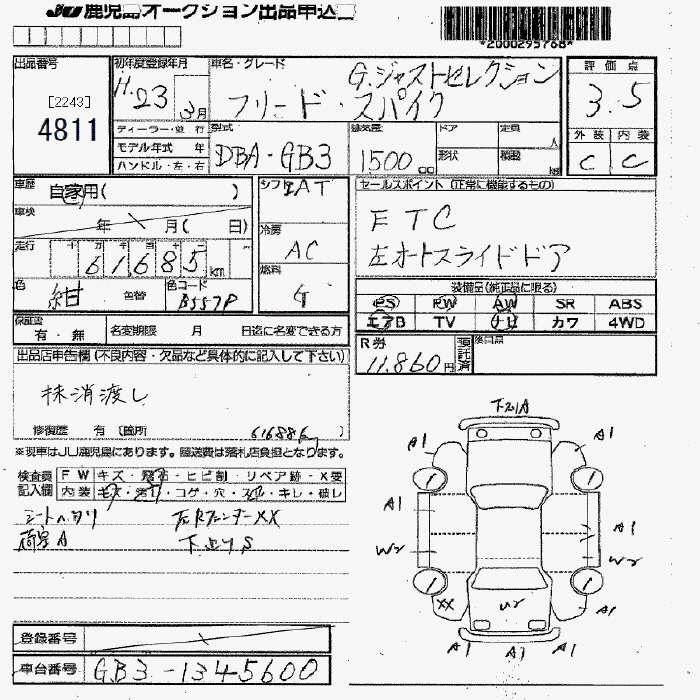 JU 鹿児島オークション出品申込
*2000295768*
出品番号
[2243]
4811
初年度登録年月
H.23 3月
車名・グレード
G.ジャストセレクション
フリード・スパイク
評価点
3.5
外装 内装
C C
ディーラー・並行
モデル年式 年
ハンドル・左・右
型式
DBA-GB3
排気量
1500 cc
ドア
形状
定員 人
積載 kg
車歴
自家用( )
車検
年 月( 日)
走行
十 万 千 百 十 一
61,685 km
色
紺
色替
色コード
B557P
シフト
IAT
冷房
AC
燃料
G
セールスポイント (正常に機能するもの)
ETC
左オートスライドドア
装備品(純正品に限る)
PS PW AW SR ABS
エアB TV ナビ カワ 4WD
保証書
有・無
名変期限 月 日迄に名変できる方
R券
11,860円
預託済
検印点
出品店申告欄 (不良内容・欠品など具体的に記入して下さい)
抹消渡し
修復歴 有 (箇所 )
61688K
※現車はJU鹿児島にあります。陸送費は落札店負担となります。
検査員記入欄
FW キズ・飛石・ヒビ割・リペア跡・X要
内装 キズ・汚れ・コゲ・穴・スレ・キレ・破レ
シートヘタリ
荷室A
左RフェンダーXX
下廻りS
下廻りA
A1
A1
A1
A1
W2
W2
XX
U2
A1
A1
A1
登録番号
車台番号
GB3-1345600